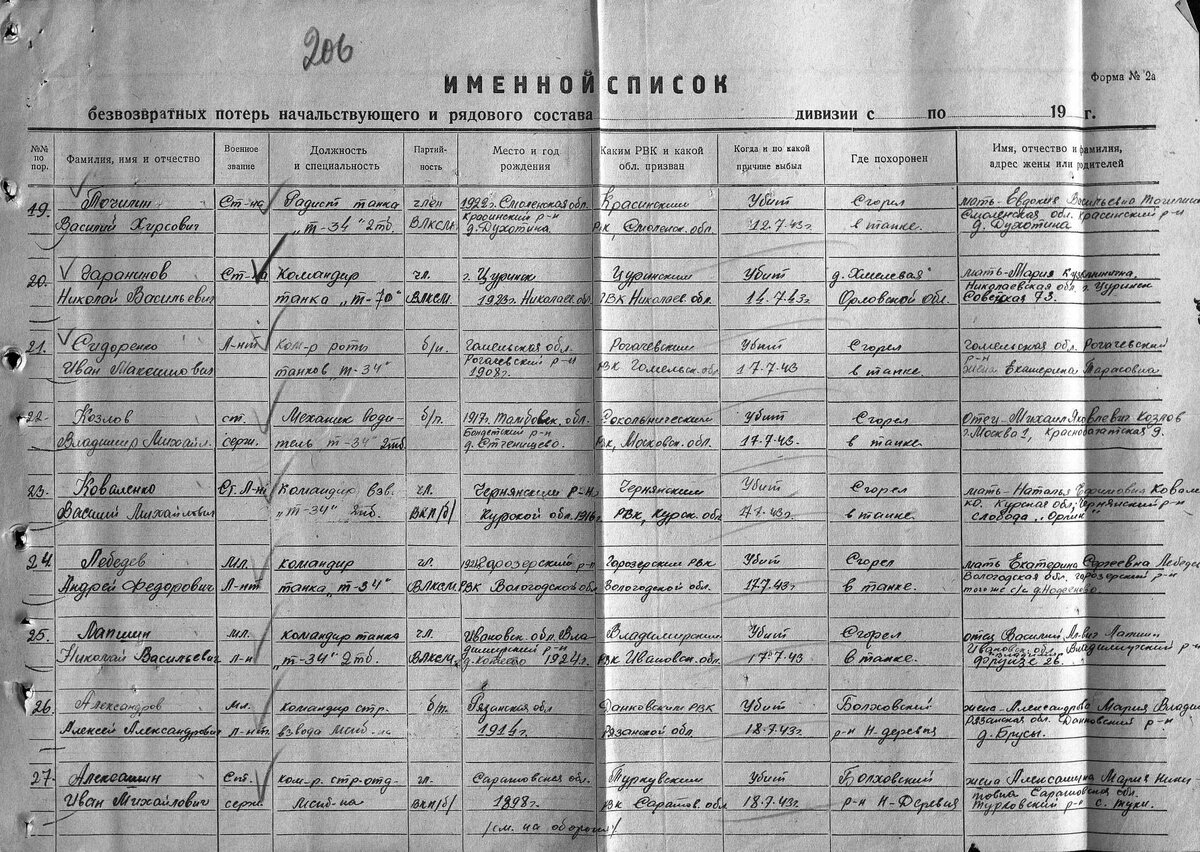 206
ИМЕННОЙ СПИСОК
Форма № 2а
безвозвратных потерь начальствующего и рядового состава дивизии с по 19 г.
№№ по пор. Фамилия, имя и отчество Военное звание Должность и специальность Партийность Место и год рождения Каким РВК и какой обл. призван Когда и по какой причине выбыл Где похоронен Имя, отчество и фамилия, адрес жены или родителей
19. Точилин Ст-на Радист танка член 1922г. Смоленская обл. Красинским Убит Сгорел мать-Евдокия Васильевна
Василий Хирсович "Т-34" 2тб. ВЛКСМ Красинский р-н д. Духотина. РВК, Смоленск. обл. 12.7.43г. в танке. Смоленская обл. Красинский р-н д. Духотина
20. Гаранинов Ст-на Командир чл. г. Цуринск Цуринским Убит д. Хмелевая мать-Мария Кузьминична
Николай Васильевич танка "Т-70" ВЛКСМ 1923г. Николаев. обл. РВК Николаев обл. 14.7.43г. Орловской обл. Николаевская обл. г. Цуринск Советская 73.
21. Сидоренко Л-нт Ком-р роты б/п. Гомельская обл. Рогачевским Убит Сгорел Гомельская обл. Рогачевский р-н
Иван Максимович танков "Т-34" Рогачевский р-н 1908г. РВК Гомельск. обл. 17.7.43 в танке жена Екатерина Тарасовна
22. Козлов ст. Механик води- б/п. 1917г. Тамбовск. обл. Сокольническим Убит Сгорел Отец-Михаил Яковлевич Козлов
Владимир Михайл. серж. тель Т-34" 2тб р-н РВК, Московск. обл. 17.7.43. в танке. г. Москва 1,
23. Коваленко Ст. Л-нт Командир взв. чл. Чернянский р-н Чернянским Убит Сгорел мать-Наталья Ефимовна Ковален
Василий Михайлович "Т-34" 2тб ВКП/б/ Курской обл. 1916г. РВК, Курск. обл 17.7.43г в танке. ко. Курская обл. Чернянский р-н слобода "Орлик"
24 Лебедев Мл. командир чл. Убит Сгорел мать Екатерина Сергеевна Лебедева
Андрей Федорович Л-нт танка "Т-34" ВЛКСМ РВК Вологодской обл Вологодской обл. 17.7.43г в танке. Вологодская обл. р-н
25. Лапшин мл. командир танка чл. Ивановск. обл. Вла- Владимирским Убит Сгорел отец Василий
Николай Васильевич Л-н "Т-34" 2тб. ВЛКСМ димирский р-н 1924г. РВК Ивановск. обл. 17.7.43 в танке. Ивановск. обл. Владимирский р-н Фрунзе 26.
26. Александров Мл. командир стр. б/п. Рязанская обл Данковским РВК Убит Болховский жена-Александрова Мария
Алексей Александрович Л-нт. взвода 1914г. Рязанской обл. 18.7.43г р-н Н-деревня Рязанская обл. Данковский р-н д. Брусы.
27. Алексашин Ст. ком-р. стр. отд- чл. Саратовская обл. Турковским Убит Болховский жена Алексашина Мария Ники
Иван Михайлович серж. ВКП/б/ 1898г. РВК Саратов. обл 18.7.43г р-н Н-Деревня Саратовская обл. Турковский р-н
/см. на обороте/